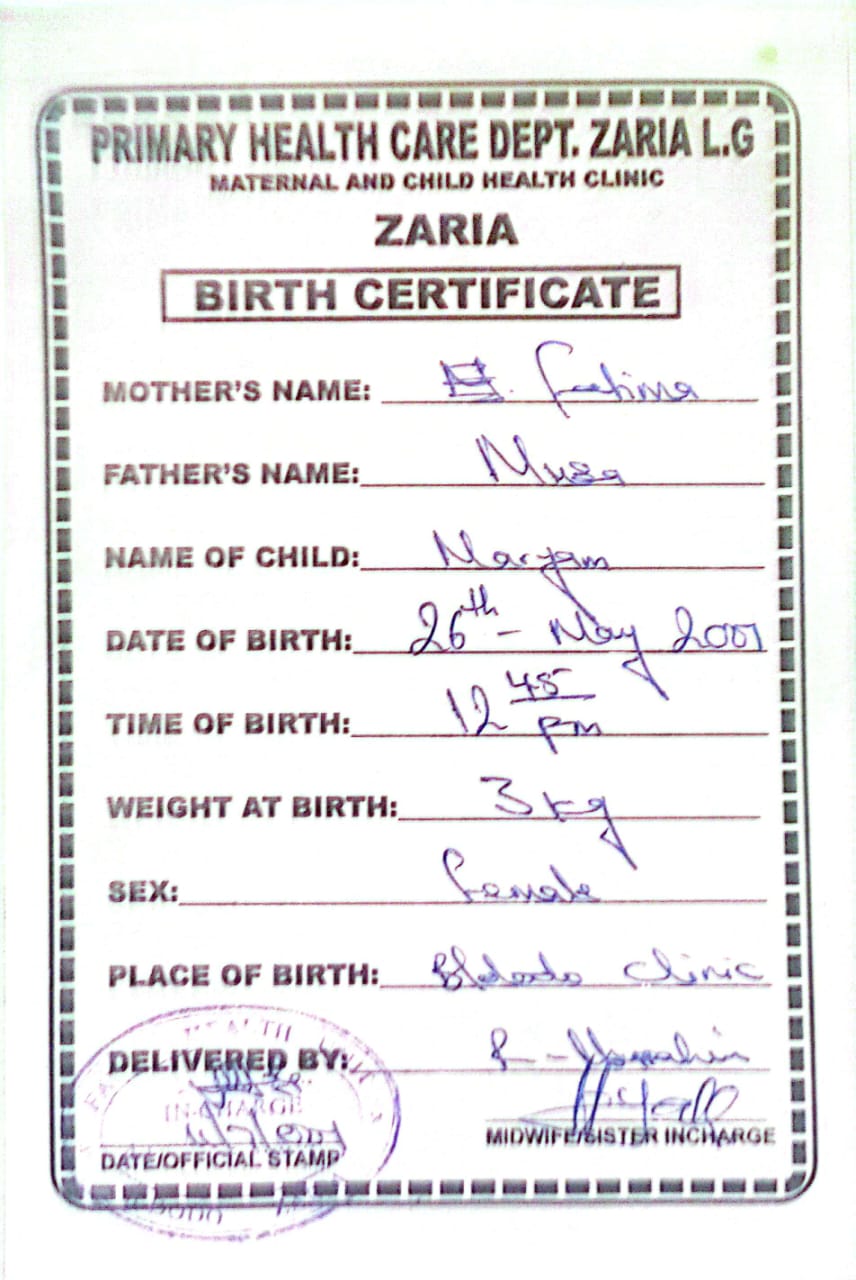 PRIMARY HEALTH CARE DEPT. ZARIA L.G
MATERNAL AND CHILD HEALTH CLINIC
ZARIA
BIRTH CERTIFICATE
MOTHER'S NAME: Fatima
FATHER'S NAME: Musa
NAME OF CHILD: Maryam
DATE OF BIRTH: 26th - May 2001
TIME OF BIRTH: 12 45 pm
WEIGHT AT BIRTH: 3kg
SEX: Female
PLACE OF BIRTH: Clinic
HEALTH
DELIVERED BY: R -
IN-CHARGE
MIDWIFE/SISTER INCHARGE
DATE/OFFICIAL STAMP